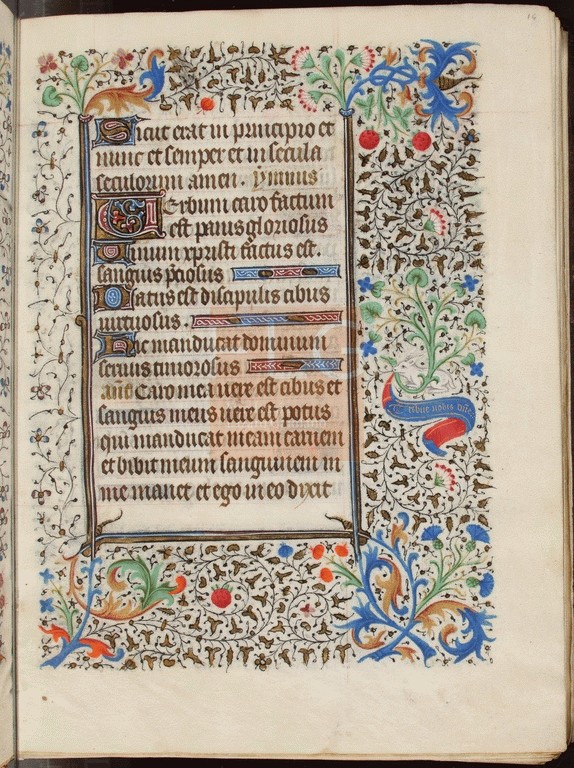 14
Sicut erat in principio et
nunc et semper et in secula
seculorum amen. ymnus
Verbum caro factum
est panis gloriosus
vinum xpristi factus est.
sanguis preciosus
Datus est discipulis cibus
virtuosus.
Hic manducat dominum
servus timorosus
ant Caro mea vere est cibus et
sanguis meus vere est potus
qui manducat meam carnem
et bibit meum sanguinem in
me manet et ego in eo dixit